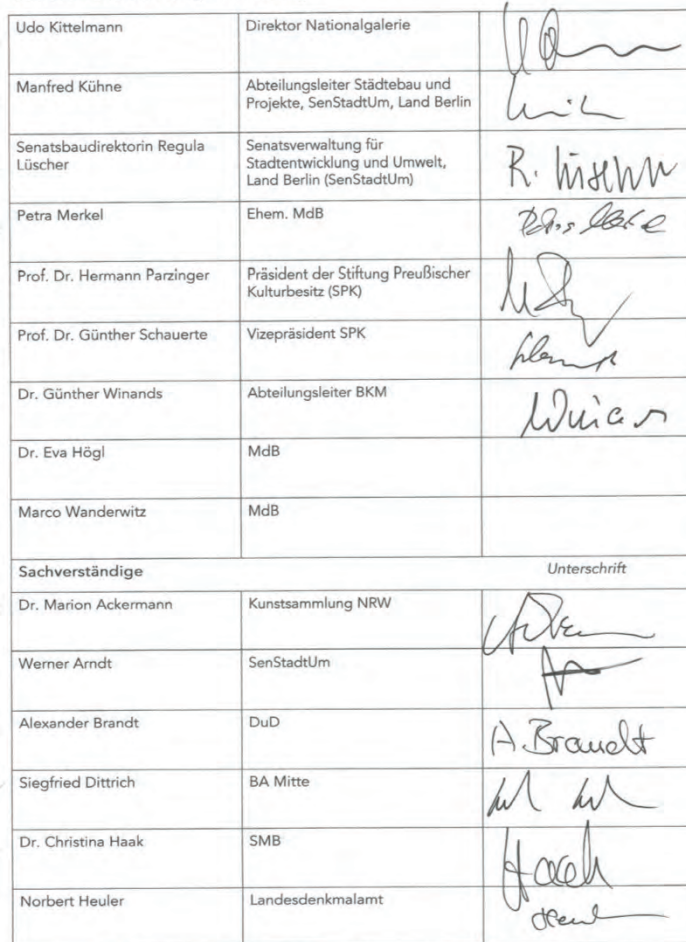 Udo Kittelmann Direktor Nationalgalerie
Manfred Kühne Abteilungsleiter Städtebau und
Projekte, SenStadtUm, Land Berlin
Senatsbaudirektorin Regula Senatsverwaltung für
Lüscher Stadtentwicklung und Umwelt,
Land Berlin (SenStadtUm)
R. Lüscher
Petra Merkel Ehem. MdB
Prof. Dr. Hermann Parzinger Präsident der Stiftung Preußischer
Kulturbesitz (SPK)
Prof. Dr. Günther Schauerte Vizepräsident SPK
Dr. Günther Winands Abteilungsleiter BKM
Dr. Eva Högl MdB
Marco Wanderwitz MdB
Sachverständige Unterschrift
Dr. Marion Ackermann Kunstsammlung NRW
Werner Arndt SenStadtUm
Alexander Brandt DuD A. Brandt
Siegfried Dittrich BA Mitte
Dr. Christina Haak SMB Haak
Norbert Heuler Landesdenkmalamt